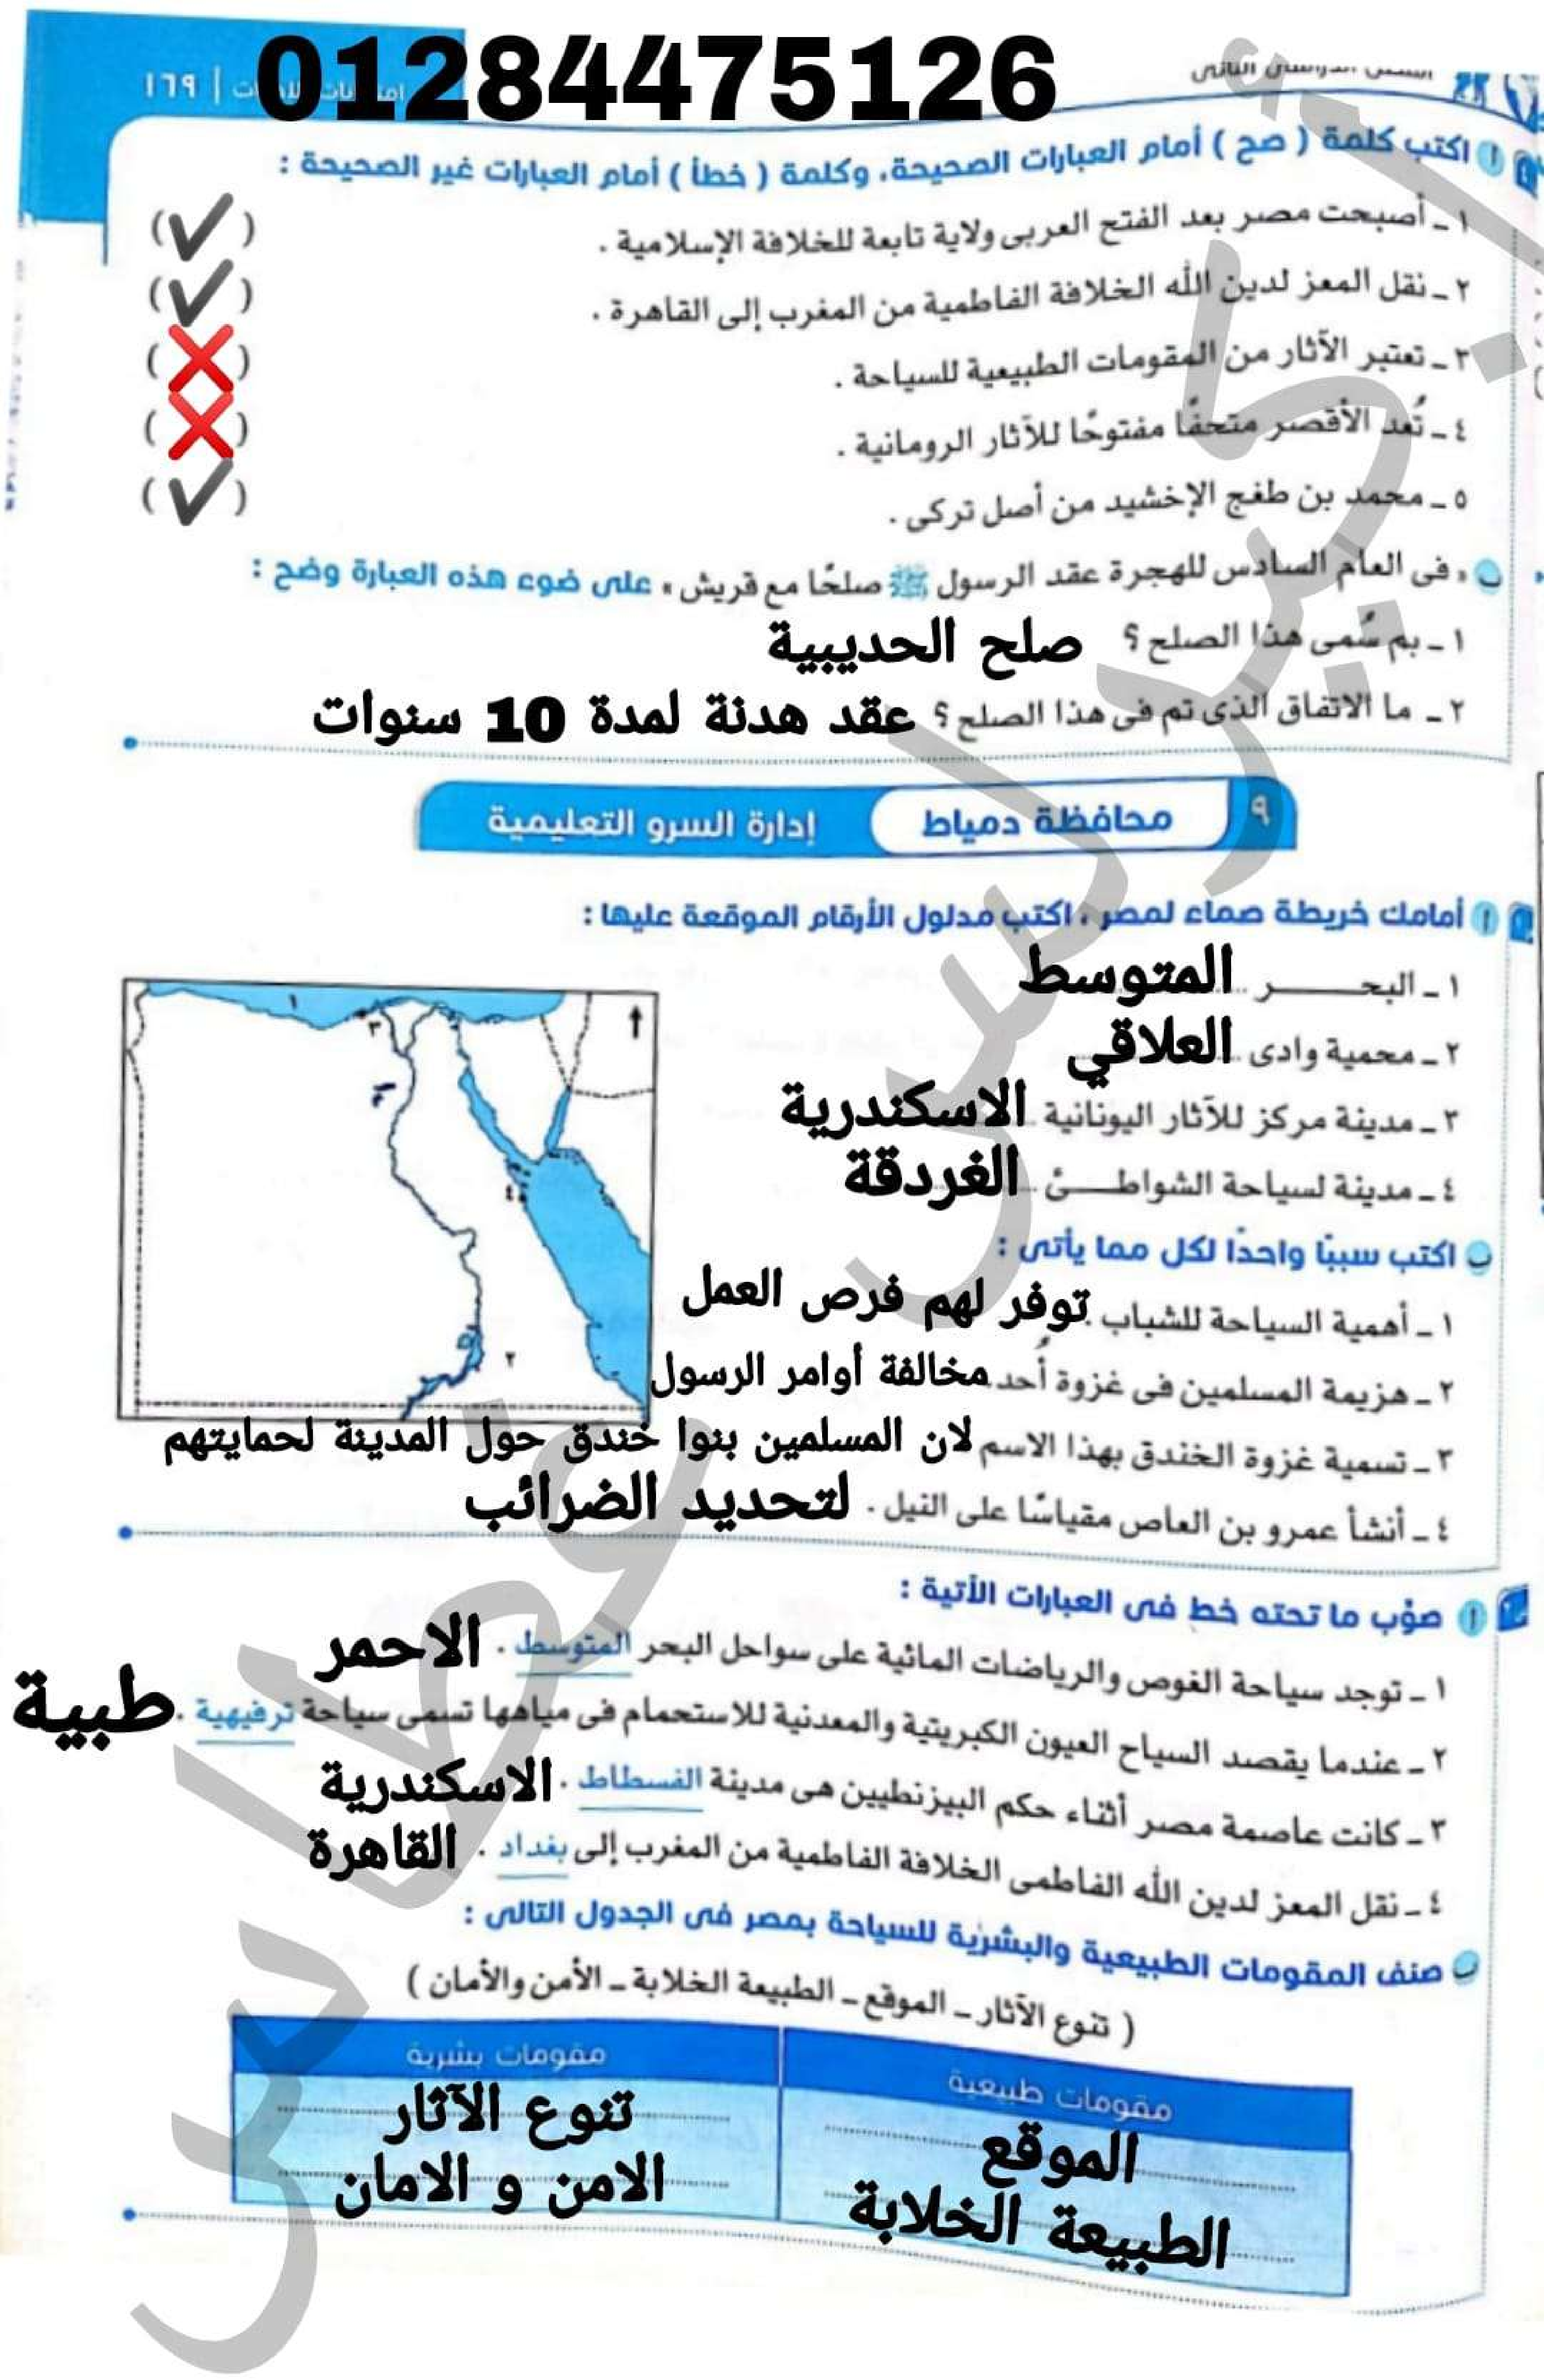 01284475126
امتحانات الإدارات | ١٦٩
الفصل الدراسى الثانى
أ اكتب كلمة ( صح ) أمام العبارات الصحيحة، وكلمة ( خطأ ) أمام العبارات غير الصحيحة :
١ ـ أصبحت مصر بعد الفتح العربى ولاية تابعة للخلافة الإسلامية . (✔)
٢ ـ نقل المعز لدين الله الخلافة الفاطمية من المغرب إلى القاهرة . (✔)
٣ ـ تعتبر الآثار من المقومات الطبيعية للسياحة . (❌)
٤ ـ تُعد الأقصر متحفًا مفتوحًا للآثار الرومانية . (❌)
٥ ـ محمد بن طغج الإخشيد من أصل تركى . (✔)
ب « فى العام السادس للهجرة عقد الرسول ﷺ صلحًا مع قريش » على ضوء هذه العبارة وضح :
١ ـ بم سُمى هذا الصلح ؟ صلح الحديبية
٢ ـ ما الاتفاق الذى تم فى هذا الصلح ؟ عقد هدنة لمدة 10 سنوات
٩ محافظة دمياط إدارة السرو التعليمية
أ أمامك خريطة صماء لمصر ، اكتب مدلول الأرقام الموقعة عليها :
١ ـ البحـــــر المتوسط
٢ ـ محمية وادى العلاقي
٣ ـ مدينة مركز للآثار اليونانية الاسكندرية
٤ ـ مدينة لسياحة الشواطــئ الغردقة
١
٣
٤
٢
ب اكتب سببًا واحدًا لكل مما يأتى :
١ ـ أهمية السياحة للشباب . توفر لهم فرص العمل
٢ ـ هزيمة المسلمين فى غزوة أُحد . مخالفة أوامر الرسول
٣ ـ تسمية غزوة الخندق بهذا الاسم لان المسلمين بنوا خندق حول المدينة لحمايتهم
٤ ـ أنشأ عمرو بن العاص مقياسًا على النيل . لتحديد الضرائب
أ صوّب ما تحته خط فى العبارات الآتية :
١ ـ توجد سياحة الغوص والرياضات المائية على سواحل البحر المتوسط . الاحمر
٢ ـ عندما يقصد السياح العيون الكبريتية والمعدنية للاستحمام فى مياهها تسمى سياحة ترفيهية . طبية
٣ ـ كانت عاصمة مصر أثناء حكم البيزنطيين هى مدينة الفسطاط . الاسكندرية
٤ ـ نقل المعز لدين الله الفاطمى الخلافة الفاطمية من المغرب إلى بغداد . القاهرة
ب صنف المقومات الطبيعية والبشرية للسياحة بمصر فى الجدول التالى :
( تنوع الآثار ـ الموقع ـ الطبيعة الخلابة ـ الأمن والأمان )
مقومات طبيعية
مقومات بشرية
الموقع
تنوع الآثار
الطبيعة الخلابة
الامن و الامان